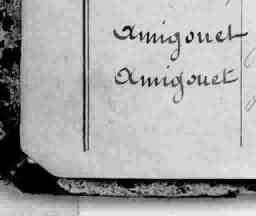 Amigouet
Amigouet